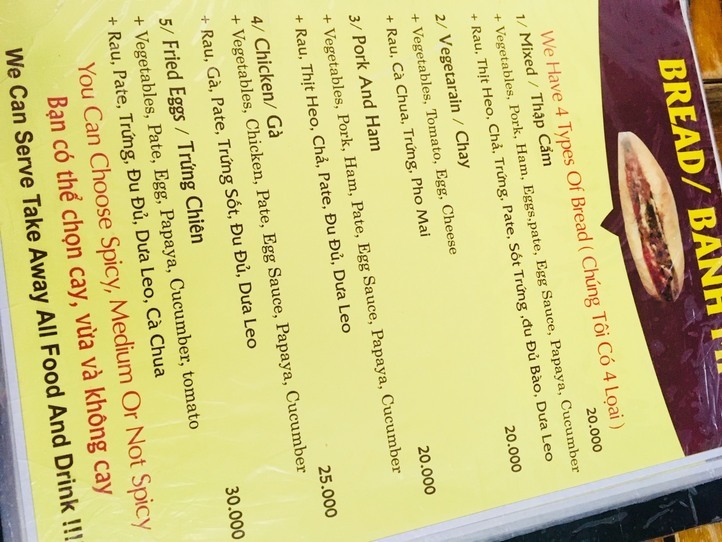 BREAD/ BÁNH
We Have 4 Types Of Bread ( Chúng Tôi Có 4 Loại )
1/ Mixed / Thập Cẩm 20.000
+ Vegetables, Pork, Ham, Eggs,pate, Egg Sauce, Papaya, Cucumber
+ Rau, Thịt Heo, Chả, Trứng, Pate, Sốt Trứng ,đu Đủ Bào, Dưa Leo
2/ Vegetarain / Chay 20.000
+ Vegetables, Tomato, Egg, Cheese
+ Rau, Cà Chua, Trứng, Pho Mai
3/ Pork And Ham 20.000
+ Vegetables, Pork, Ham, Pate, Egg Sauce, Papaya, Cucumber
+ Rau, Thịt Heo, Chả, Pate, Đu Đủ, Dưa Leo
4/ Chicken/ Gà 25.000
+ Vegetables, Chicken, Pate, Egg Sauce, Papaya, Cucumber
+ Rau, Gà, Pate, Trứng Sốt, Đu Đủ, Dưa Leo
5/ Fried Eggs / Trứng Chiên 30.000
+ Vegetables, Pate, Egg, Papaya, Cucumber, tomato
+ Rau, Pate, Trứng, Đu Đủ, Dưa Leo, Cà Chua
You Can Choose Spicy, Medium Or Not Spicy
Bạn có thể chọn cay, vừa và không cay
We Can Serve Take Away All Food And Drink !!!